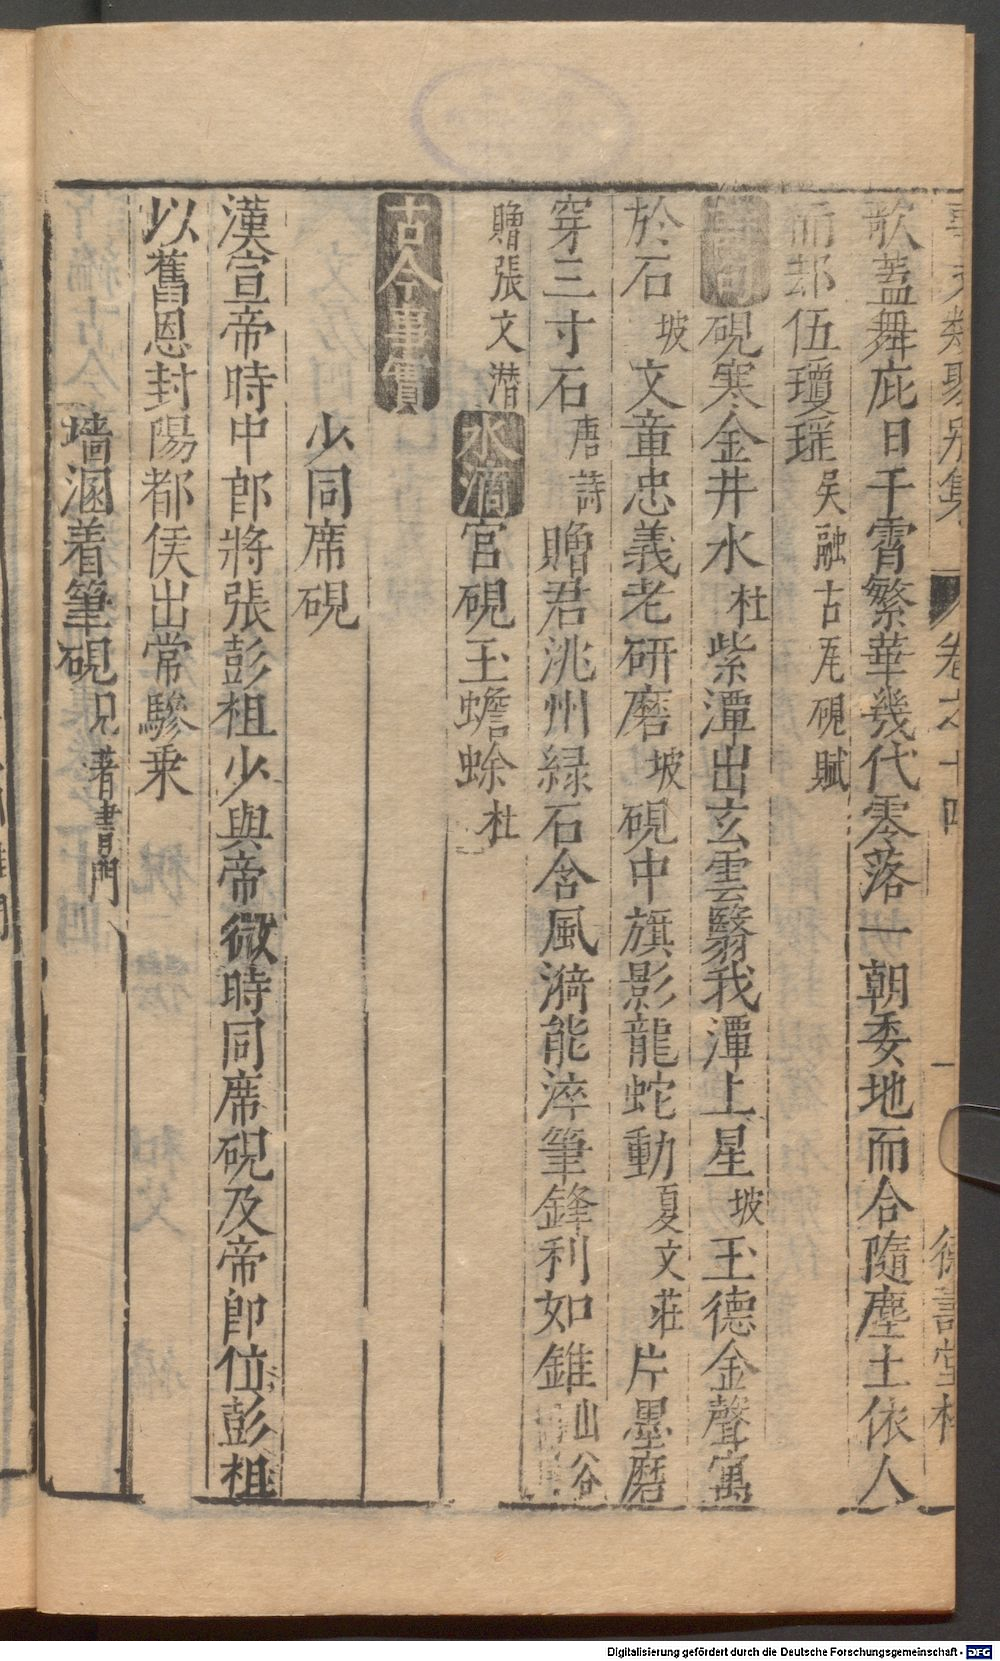 卷之十四
歌蓋舞庇日干霄繁華幾代零落一朝委地而合隨塵土依人
而却伍瓊瑶吳融古瓦硯賦
硯寒金井水杜紫潭出玄雲翳我潭上星坡玉德金聲寓
於石坡文章忠義老研磨坡硯中旗影龍蛇動夏文莊片墨磨
穿三寸石唐詩贈君洮州緑石含風漪能淬筆鋒利如錐山谷
贈張文潜水滴宮硯玉蟾蜍杜
古今事實
少同席硯
漢宣帝時中郎將張彭祖少與帝微時同席硯及帝即位彭祖
以舊恩封陽都侯出常驂乘
墻溷着筆硯見著書門
Digitalisierung gefördert durch die Deutsche Forschungsgemeinschaft - DFG